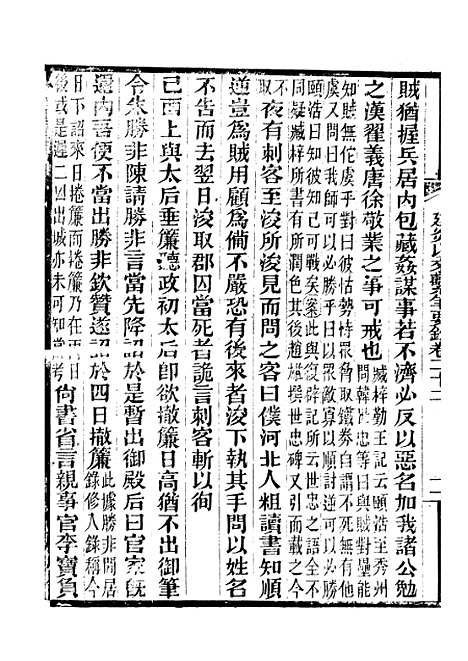 建炎以來繫年要錄卷二十二
賊猶握兵居內包藏姦謀事若不濟必反以惡名加我諸公勉
之漢翟義唐徐敬業之事可戒也
臧梓勤王記云頤浩至秀州
問韓世忠等曰與賊對壘能
知賊無佗虞乎對曰彼怙勢恃眾脅取鐵券自謂不死無有他
虞又問曰我師可以必勝乎曰以眾敵寡以順討逆何可以必勝
頤浩曰知彼知己可戰矣案此與復辟記所云世忠之語全不
同疑臧梓所有所潤色其後趙雄撰世忠碑又引而載之今
不取
夜有刺客至浚所浚見而問之客曰僕河北人粗讀書知順
逆豈爲賊用顧爲備不嚴恐有後來者浚下執其手問以姓名
不告而去翌日浚取郡囚當死者詭言刺客斬以徇
己酉上與太后垂簾聽政初太后卽欲撤簾日高猶不出御筆
令朱勝非陳請勝非言當先降詔於是暫出御殿后曰官家旣
還內吾便不當出勝非欽贊遂詔於四日撤簾
此據勝非閒居
錄修入錄稱今
日下詔來日捲簾而捲簾乃在兩日
後或是遲二四出城亦未可知當考
尙書省言親事官李寶負